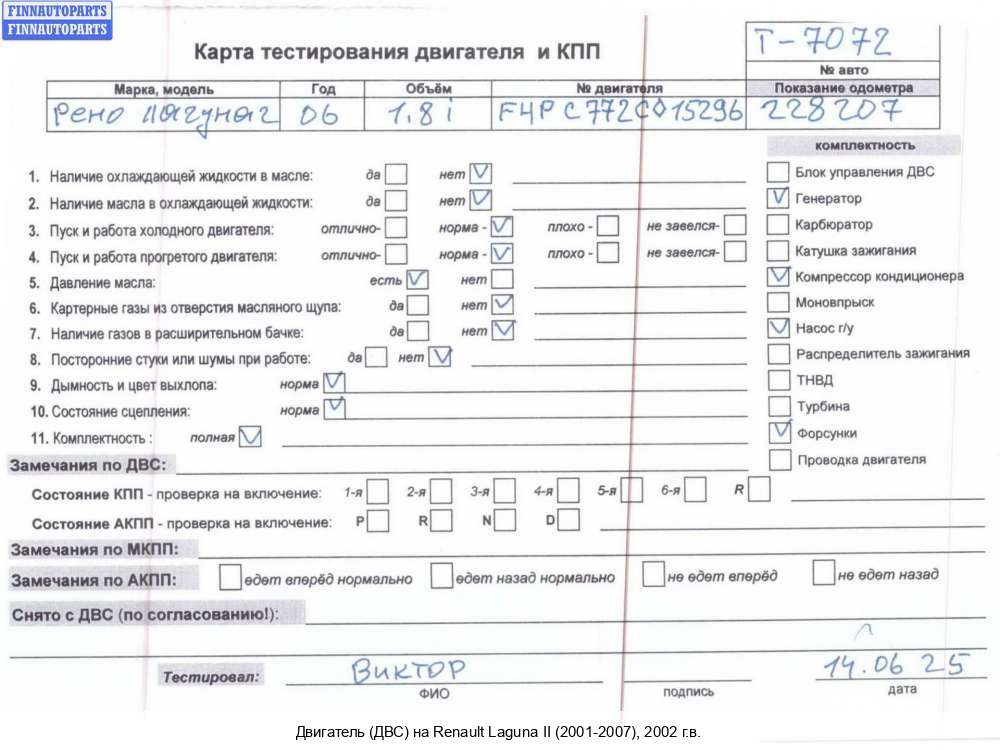 FINNAUTOPARTS
FINNAUTOPARTS
Карта тестирования двигателя и КПП
Т-7072
№ авто
Марка, модель Год Объём № двигателя Показание одометра
Рено Лагуна 2 06 1.8 i F4P C772C015296 228207
комплектность
1. Наличие охлаждающей жидкости в масле: да нет
Блок управления ДВС
2. Наличие масла в охлаждающей жидкости: да нет
Генератор
3. Пуск и работа холодного двигателя: отлично- норма - плохо - не завелся-
Карбюратор
4. Пуск и работа прогретого двигателя: отлично- норма - плохо - не завелся-
Катушка зажигания
5. Давление масла: есть нет
Компрессор кондиционера
6. Картерные газы из отверстия масляного щупа: да нет
Моновпрыск
7. Наличие газов в расширительном бачке: да нет
Насос г/у
8. Посторонние стуки или шумы при работе: да нет
Распределитель зажигания
9. Дымность и цвет выхлопа: норма
ТНВД
10. Состояние сцепления: норма
Турбина
11. Комплектность : полная
Форсунки
Замечания по ДВС:
Проводка двигателя
Состояние КПП - проверка на включение: 1-я 2-я 3-я 4-я 5-я 6-я R
Состояние АКПП - проверка на включение: P R N D
Замечания по МКПП:
Замечания по АКПП: едет вперёд нормально едет назад нормально не едет вперёд не едет назад
Снято с ДВС (по согласованию!):
Тестировал: Виктор 14.06 25
ФИО подпись дата
Двигатель (ДВС) на Renault Laguna II (2001-2007), 2002 г.в.